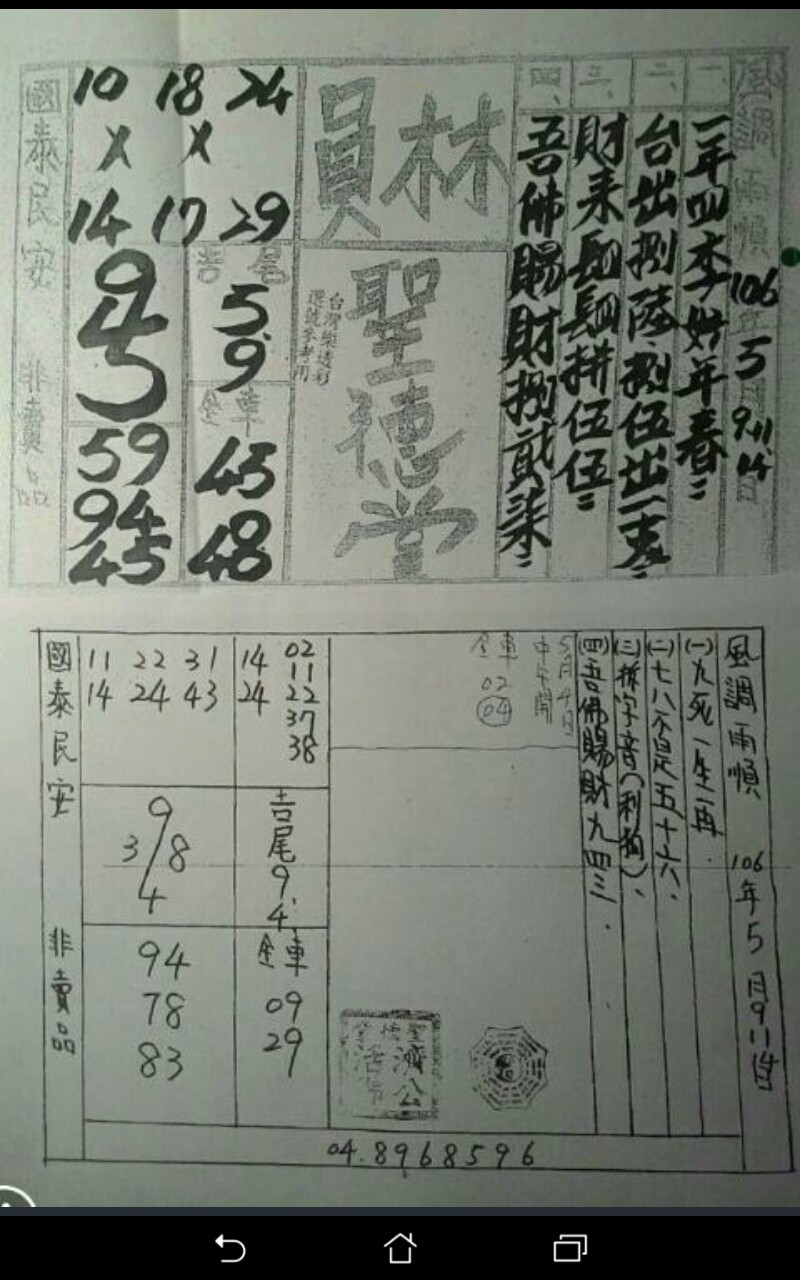 風調雨順 106年5月9.11.14日
一、一年四季好年春
二、台出捌陸.捌伍出一表
三、財來長短拼伍伍
四、吾佛賜財捌貳柒
林員
聖德堂
台灣樂透彩
選號參考用
24 18 10
X X
29 17 14
吉尾
5.9
全車
45
48
9
4
5
59
94
45
國泰民安 非賣品
風調雨順 106年5月9 11 14日
(一)九死一生一再.
(二)七八不是五十六、
(三)拼字音(利狗)、
(四)吾佛賜財九四三.
5月4日
中午開
全車
02
04
14 02
11
24 22
37
38
11 22 31
14 24 43
吉尾
9.
4.
9
3/8
4
全車
09
29
94
78
83
濟公
活佛
國泰民安 非賣品
04.8968596